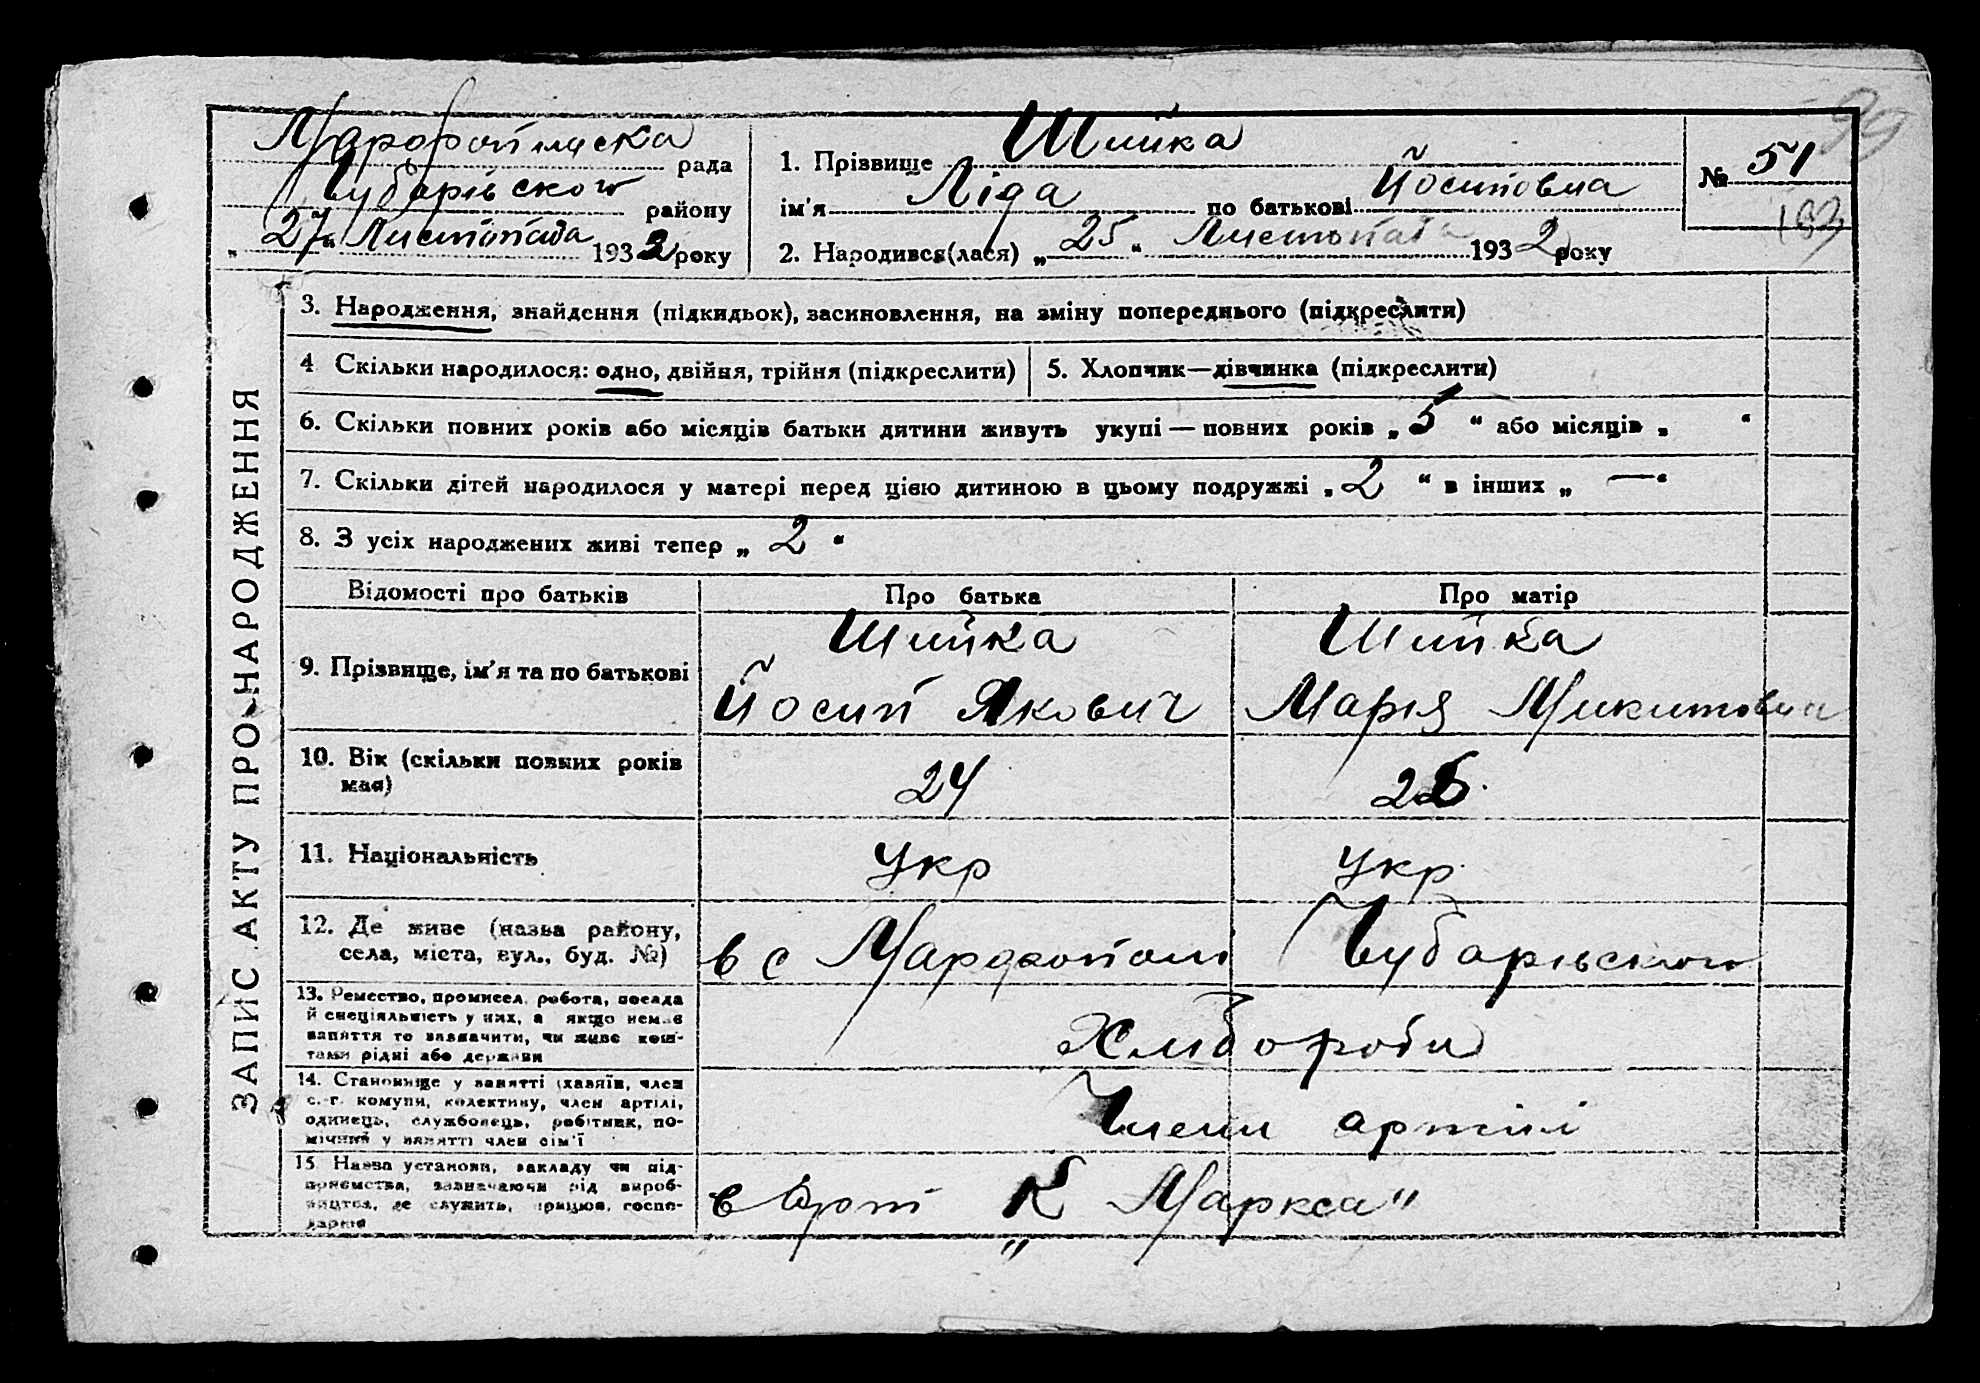 99
Марфопільска рада
Чубарівського району
„27“ Листопада 1932 року
1. Прізвище Шийка
ім'я Ліда по батькові Йосиповна
2. Народився(лася) „25“ Листопада 1932 року
№ 51
ЗАПИС АКТУ ПРО НАРОДЖЕННЯ
3. Народження, знайдення (підкидьок), засиновлення, на зміну попереднього (підкреслити)
4 Скільки народилося: одно, двійня, трійня (підкреслити)
5. Хлопчик—дівчинка (підкреслити)
6. Скільки повних років або місяців батьки дитини живуть укупі — повних років „5“ або місяців „ “
7. Скільки дітей народилося у матері перед цією дитиною в цьому подружжі „2“ в інших „—“
8. З усіх народжених живі тепер „2“
Відомості про батьків Про батька Про матір
9. Прізвище, ім'я та по батькові
Шийка Шийка
Йосип Якович Марія Микитовна
10. Вік (скільки повних років
має)
24
11. Національність Укр Укр
12. Де живе (назва району,
села, міста, вул., буд. №)
в с Марфополі Чубарівського
13. Ремество, промисел, робота, посада
й спеціяльність у них, а якщо немає
заняття то зазначити, чи живе кош-
тами рідні або держави
Хлібороби
14. Становище у занятті (хазяїн, член
с.-г. комуни, колективу, член артілі,
одинець, службовець, робітник, по-
мічний у занятті член сім'ї
Члени артілі
15. Назва установи, закладу чи під-
приємства, зазначаючи рід вироб-
ництва, де служить, працює, госпо-
дарює
в Арт „К Маркса"